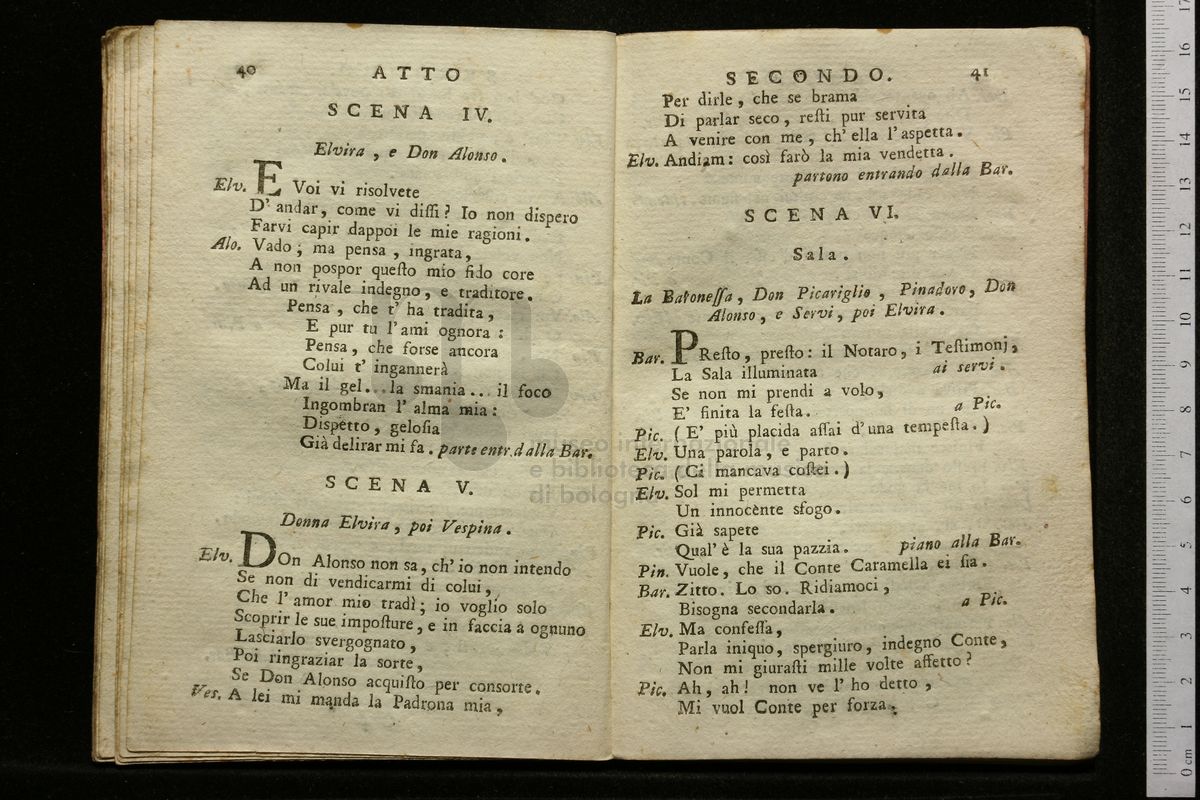 40 ATTO
SCENA IV.
Elvira, e Don Alonso.
Elv. E Voi vi risolvete
D' andar, come vi dissi? Io non dispero
Farvi capir dappoi le mie ragioni.
Alo. Vado; ma pensa, ingrata,
A non pospor questo mio fido core
Ad un rivale indegno, e traditore.
Pensa, che t' ha tradita,
E pur tu l'ami ognora:
Pensa, che forse ancora
Colui t' ingannerà
Ma il gel... la smania... il foco
Ingombran l' alma mia:
Dispetto, gelosia
Già delirar mi fa. parte entr. dalla Bar.
SCENA V.
Donna Elvira, poi Vespina.
Elv. DOn Alonso non sa, ch' io non intendo
Se non di vendicarmi di colui,
Che l' amor mio tradì; io voglio solo
Scoprir le sue imposture, e in faccia a ognuno
Lasciarlo svergognato,
Poi ringraziar la sorte,
Se Don Alonso acquisto per consorte.
Ves. A lei mi manda la Padrona mia,
SECONDO. 41
Per dirle, che se brama
Di parlar seco, resti pur servita
A venire con me, ch' ella l'aspetta.
Elv. Andiam: così farò la mia vendetta.
partono entrando dalla Bar.
SCENA VI.
Sala.
La Baronessa, Don Picariglio, Pinadoro, Don
Alonso, e Servi, poi Elvira.
Bar. PResto, presto: il Notaro, i Testimonj,
La Sala illuminata ai servi.
Se non mi prendi a volo,
E' finita la festa. a Pic.
Pic. (E' più placida assai d'una tempesta.)
Elv. Una parola, e parto.
Pic. (Ci mancava costei.)
Elv. Sol mi permetta
Un innocènte sfogo.
Pic. Già sapete
Qual' è la sua pazzia. piano alla Bar.
Pin. Vuole, che il Conte Caramella ei sia.
Bar. Zitto. Lo so. Ridiamoci,
Bisogna secondarla. a Pic.
Elv. Ma confessa,
Parla iniquo, spergiuro, indegno Conte,
Non mi giurasti mille volte affetto?
Pic. Ah, ah! non ve l' ho detto,
Mi vuol Conte per forza.
museo internazionale
e biblioteca della musica
di bologna
0 cm 1 2 3 4 5 6 7 8 9 10 11 12 13 14 15 16 17